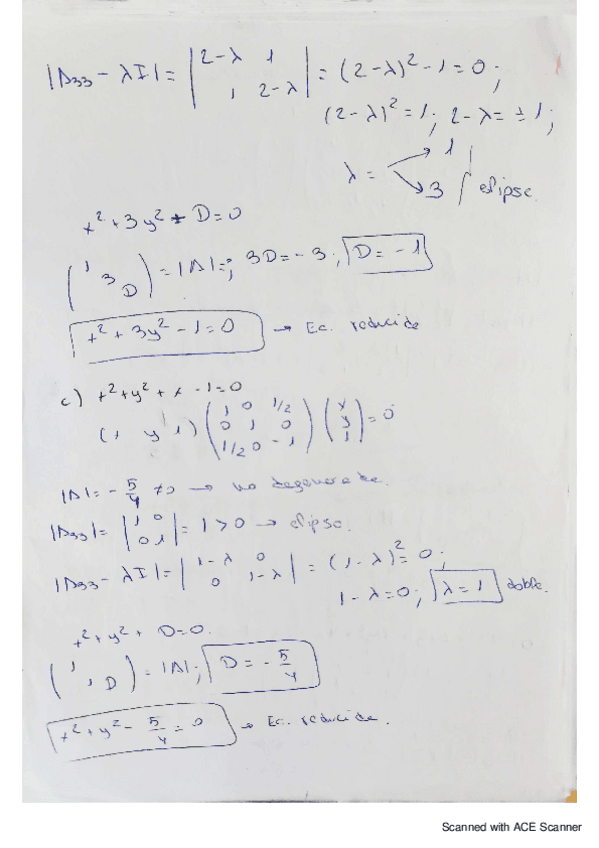 |A33 - λI| = | 2-λ 1 | = (2-λ)² - 1 = 0;
| 1 2-λ |
(2-λ)² = 1; 2-λ = ± 1;
λ = 1
3 elipse.
x² + 3y² + D = 0
( 1 3 D ) = |A| =; 3D = - 3; D = - 1
x² + 3y² - 1 = 0 → Ec. reducida
c) x² + y² + x - 1 = 0
( y 1 ) ( 1 0 1/2 ) ( x ) = 0
( 0 1 0 ) ( y )
( 1/2 0 - 1 ) ( 1 )
|A| = - 5/4 ≠ 0 → no degenerada.
|A33| = | 1 0 | = 1 > 0 → elipse.
| 0 1 |
|A33 - λI| = | 1-λ 0 | = (1-λ)² = 0;
| 0 1-λ |
1-λ = 0; λ = 1 doble.
x² + y² + D = 0.
( 1 1 D ) = |A|; D = - 5/4
x² + y² - 5/4 = 0 → Ec. reducida.
Scanned with ACE Scanner